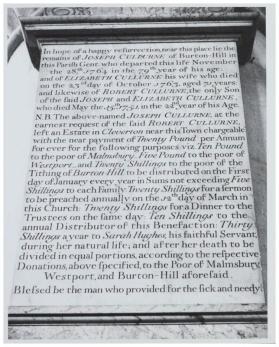 In hope of a happy resurrection, near this place lie the
remains of JOSEPH CULLURNE of Burton-Hill in
this Parish Gent. who departed this life November
the 28th 1764 in the 79th year of his age:
and of ELIZABETH CULLURNE his wife who died
on the 23d day of October 1763, aged 72 years.
and likewise of ROBERT CULLURNE, the only Son
of the said JOSEPH and ELIZABETH CULLURNE,
who died May the 15th 1751 in the 22d year of his Age.
N.B. The above-named JOSEPH CULLURNE, at the
earnest request of the said ROBERT CULLURNE,
left an Estate in Cleverton near this Town chargeable
with the neat payment of Twenty Pounds per Annum
for ever for the following purposes viz. Ten Pound
to the poor of Malmsbury, Five Pound to the poor of
Westport, and Twenty Shillings to the poor of the
Tithing of Burton Hill to be distributed on the First
day of January every year in Sums not exceeding Five
Shillings to each Family Twenty Shillings for a sermon
to be preached annually on the 12th day of March in
this Church: Twenty Shillings for a Dinner to the
Trustees on the same day: Ten Shillings to the
annual Distributor of this Benefaction: Thirty
Shillings a year to Sarah Hughes, his faithful Servant,
during her natural life; and after her death to be
divided in equal portions, according to the respective
Donations, above specified, to the Poor of Malmsbury
Westport, and Burton-Hill aforesaid.
Blessed be the man who provided for the sick and needy.